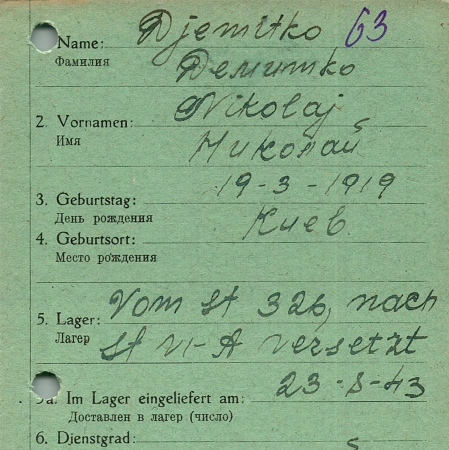 Name: Djemitko 63
Фамилия Демитко
2. Vornamen: Nikolaj
Имя Николай
3. Geburtstag: 19-3-1919
День рождения
4. Geburtsort: Киев.
Место рождения
5. Lager: Vom St 326, nach
Лагер St VI-A versetzt
a. Im Lager eingeliefert am: 23-8-43
Доставлен в лагер (число)
6. Dienstgrad: